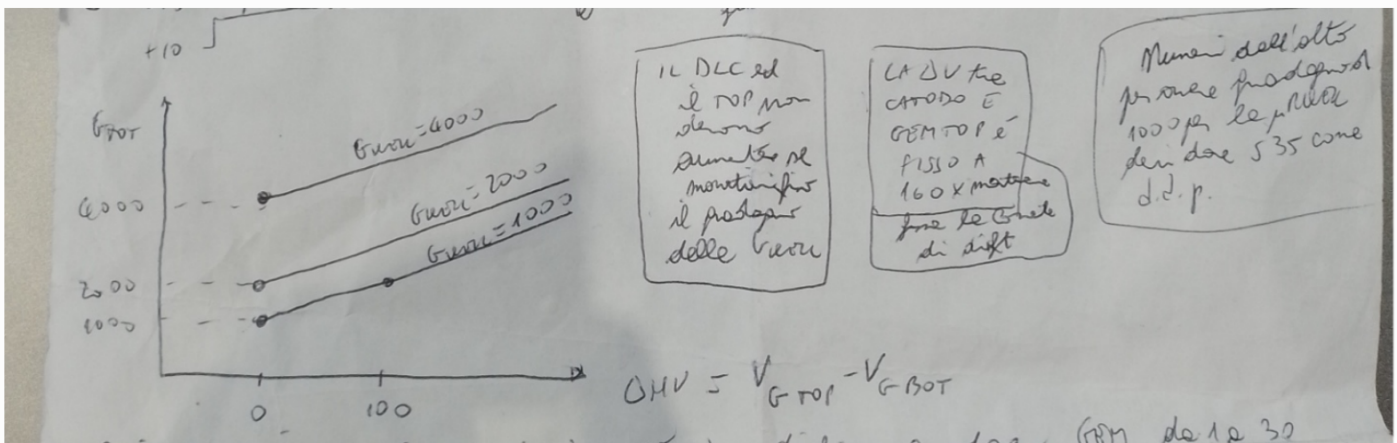 +10
G_BOT
4000
2000
1000
0
100
=4000
=2000
=1000
IL DLC ed
il TOP non
devono
aumentare se
il guadagno
delle
LA ΔV tra
CATODO E
GEM TOP é
FISSO A
160 x mantenere
fisso le
di drift
Numeri dall'alto
per avere guadagno di
1000 per la μRWELL
devi dare 535 come
d.d.p.
ΔHV = V_G TOP - V_G BOT
GEM da 1 a 30